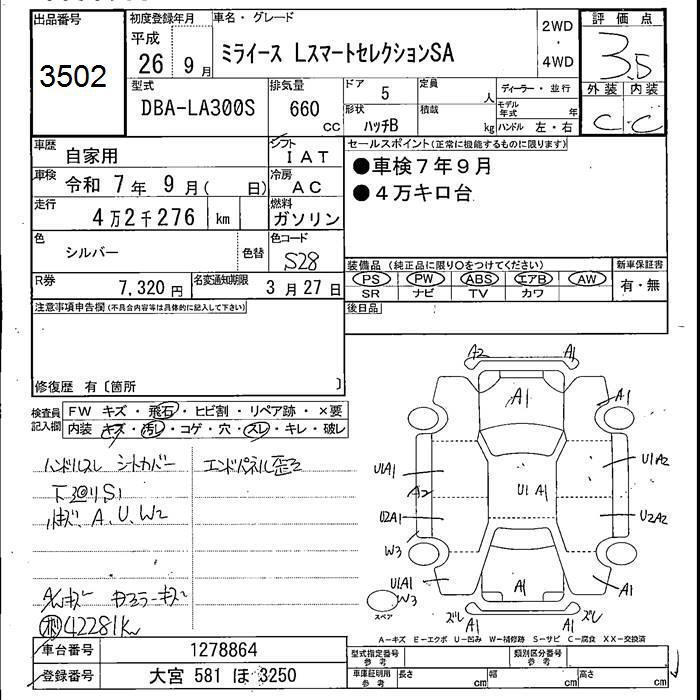 出品番号
3502
初度登録年月
平成
26 9月
車名・グレード
ミライース LスマートセレクションSA
2WD
・
4WD
評価点
3.5
外装 内装
C C
型式
DBA-LA300S
排気量
660
CC
ドア 5
形状 ハッチB
定員 人
積載 kg
ディーラー・並行
モデル年式 年
ハンドル 左・右
車歴 自家用
シフト IAT
車検 令和 7年 9月( 日)
冷房 AC
走行 4万2千276 km
燃料 ガソリン
色 シルバー
色替
色コード S28
R券 7,320円
名変通知期限 3月27日
セールスポイント(正常に機能するものに限ります)
●車検7年9月
●4万キロ台
装備品(純正品に限り○をつけてください)
PS PW ABS エアB AW
SR ナビ TV カワ
新車保証書
有・無
後日品
注意事項申告欄(不具合内容等は具体的に記入して下さい)
修復歴 有〔箇所 〕
検査員記入欄
FW キズ・飛石・ヒビ割・リペア跡・×要
内装 キズ・汚レ・コゲ・穴・スレ・キレ・破レ
ハンドルスレ シートカバー エンドパネル歪ミ
S1
A、U、W2
42281Km
A2 A1
A1
A1
U1A1
A2
U2A1
W3
U1A1
W3
U1 A1
U1A2
U2A2
A1
A1
ズレ A1
A1 ズレ
スペア
A-キズ E-エクボ U-凹み W-補修跡 S-サビ C-腐食 XX-交換済
車台番号 1278864
登録番号 大宮 581 ほ 3250
型式指定番号
参考
類別区分番号
参考
車庫証明用
参考
長さ cm
幅 cm
高さ cm